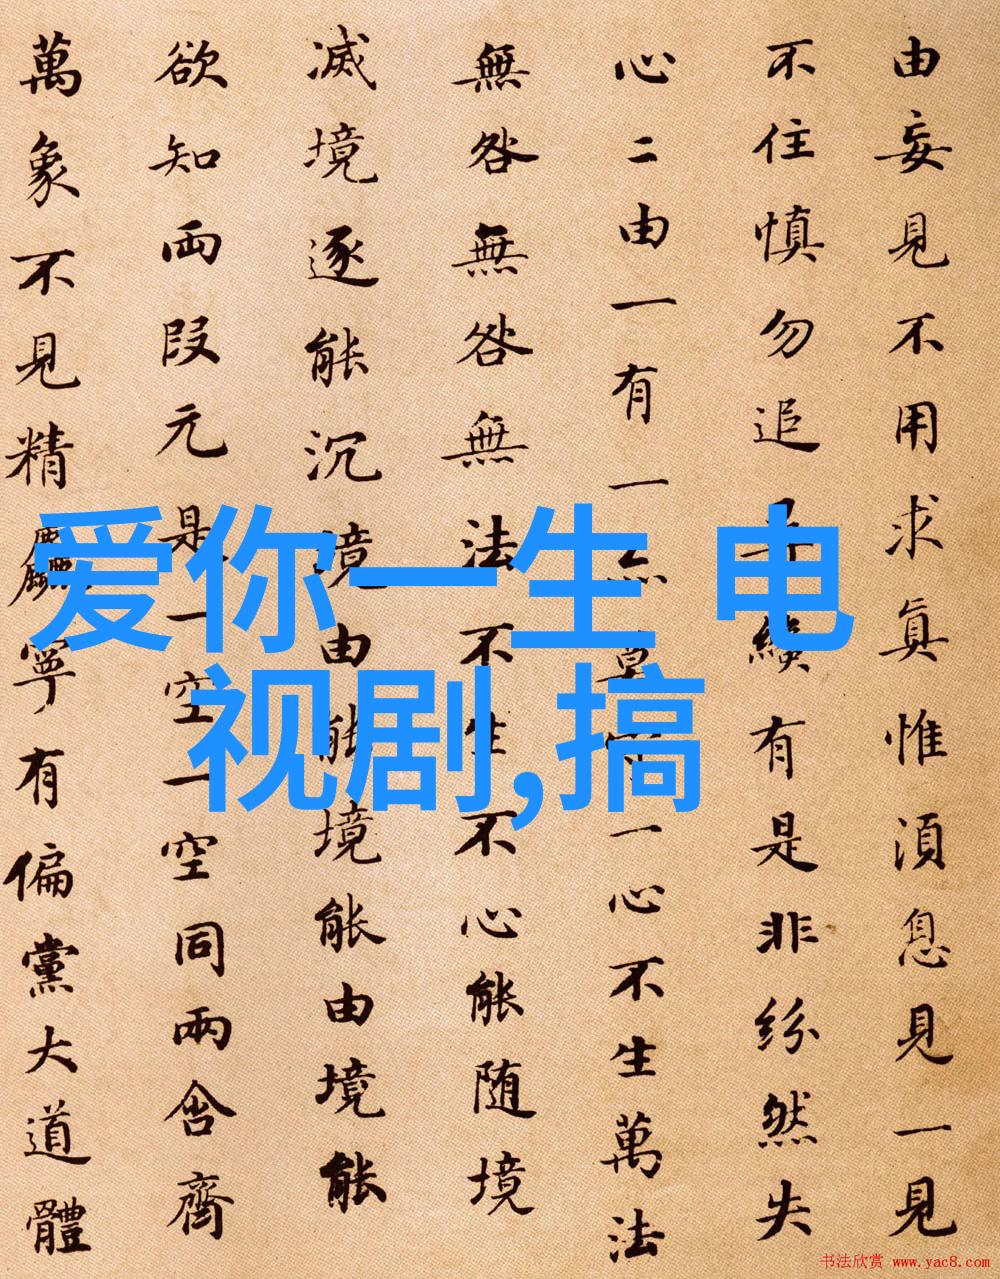 由妄見不用求真惟湏息見一見
不住慎勿追有是非紛然失
心二由一有一亦莫守一心不生萬法
無咎無咎無法不生不心能随境
滅境逐能沉境由能境能由境能
欲知両段元是一空一空同兩含齊
萬象不見精麤寧有偏黨大道體
爱你一生 电
视剧,搞
书法欣赏 www.yac8.com